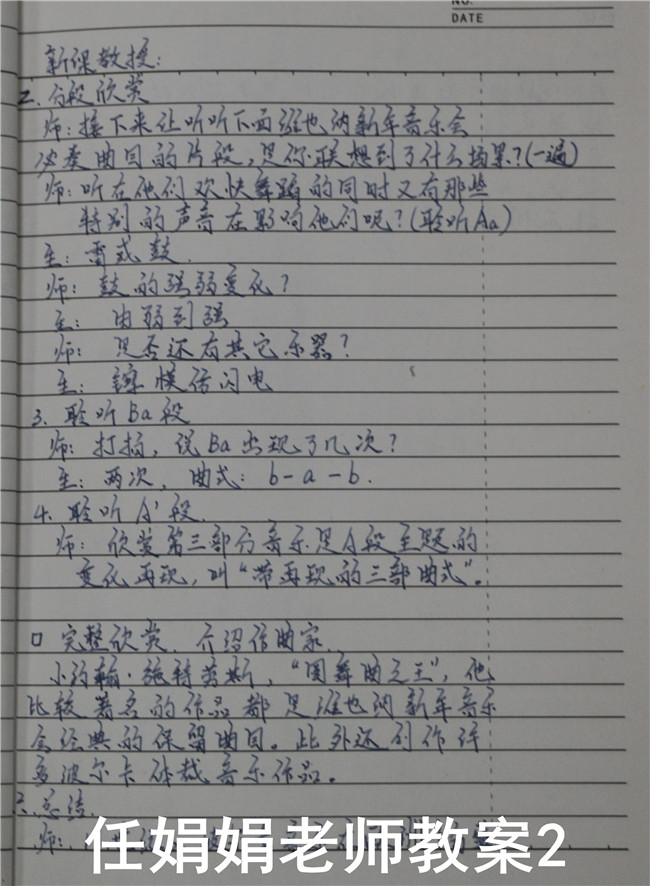 NO.
DATE
新课教授:
2. 分段欣赏
师: 接下来让听听下面维也纳新年音乐会
类曲目的片段,是你联想到了什么场景?(一遍)
师: 听在他们欢快舞蹈的同时又有那些
特别的声音在影响他们呢?(聆听Aa)
生: 雷式鼓.
师: 鼓的强弱变化?
生: 由弱到强
师: 是否还有其它乐器?
生: 镲 模仿闪电
3. 聆听Ba段
师: 打拍, 说Ba出现了几次?
生: 两次, 曲式: b-a-b.
4. 聆听A'段.
师: 欣赏第三部分音乐是A段主题的
变化再现, 叫“带再现的三部曲式”。
口 完整欣赏. 介绍作曲家.
小约翰·施特劳斯, “圆舞曲之王”, 他
比较著名的作品都是维也纳新年音乐
会经典的保留曲目。此外还创作许
多波尔卡体裁音乐作品。
三. 总结.
师:
任娟娟老师教案2